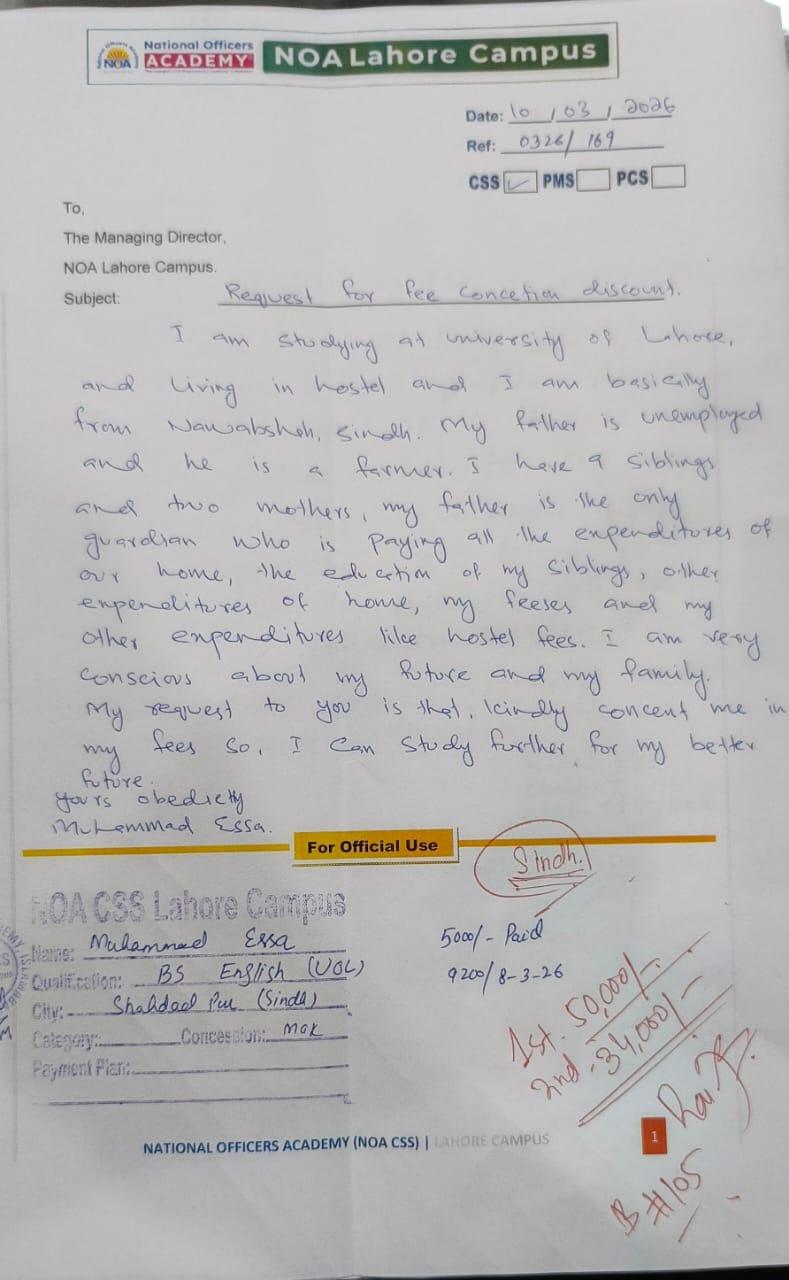 National Officers
ACADEMY
NOA
NOA Lahore Campus
Date: 10 / 03 / 2026
Ref: 0326/ 169
CSS ✓ PMS PCS
To,
The Managing Director,
NOA Lahore Campus.
Subject: Request for fee concetion discount.
I am studying at university of Lahore,
and Living in hostel and I am basically
from Nawabshah, Sindh. My father is unemployed
and he is a farmer. I have 9 siblings
and two mothers, my father is the only
guardian who is paying all the expenditures of
our home, the education of my siblings, other
expenditures of home, my feeses and my
other expenditures like hostel fees. I am very
conscious about my future and my family.
My request to you is that, kindly concent me in
my fees so, I can study further for my better
future.
yours obedictly
Muhammad Essa.
For Official Use
Sindh.
NOA CSS Lahore Campus
Name: Muhammad Essa
Qualification: BS English (UOL)
City: Shahdad Pur (Sindh)
Category: Concession: Max
Payment Plan:
5000/- Paid
9200/8-3-26
1st. 50,000/-
2nd - 34,000/-
B#105
NATIONAL OFFICERS ACADEMY (NOA CSS) | LAHORE CAMPUS
1